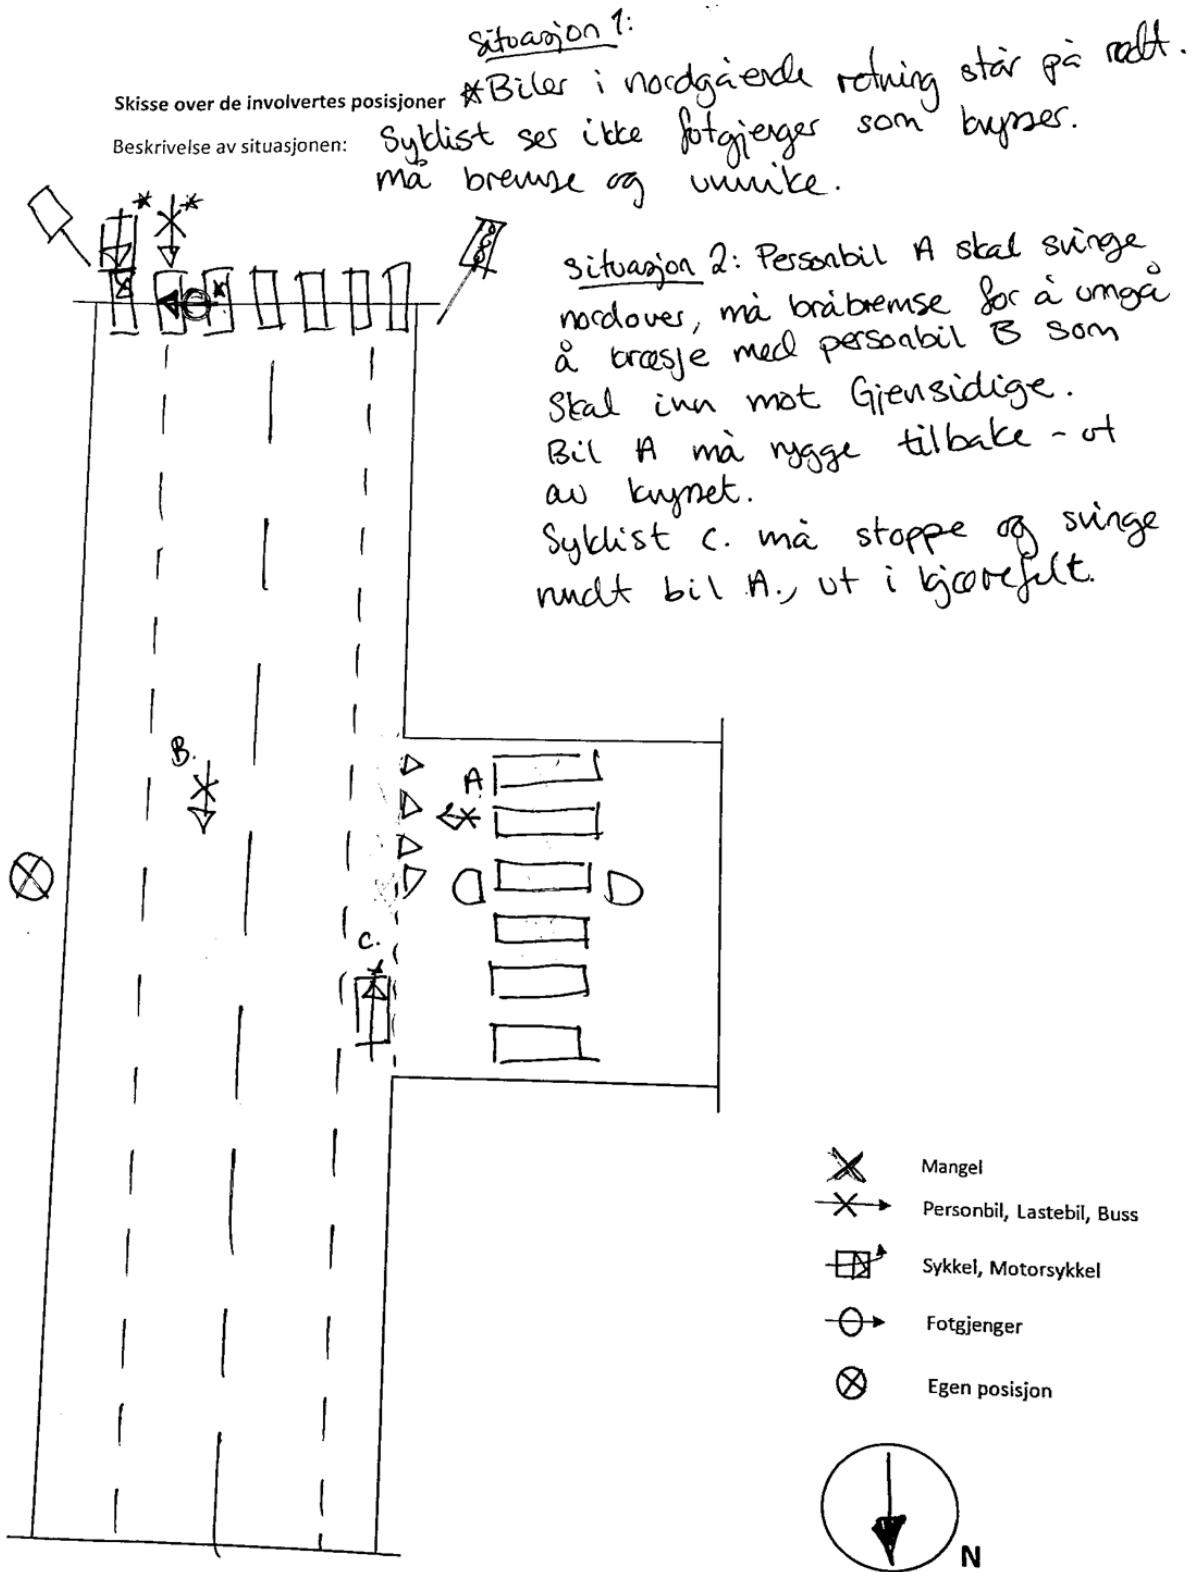 Situasjon 1:
Skisse over de involvertes posisjoner *Biler i nordgående retning står på rødt.
Beskrivelse av situasjonen: Syklist ser ikke fotgjenger som krysser.
må bremse og unnvike.
Situasjon 2: Personbil A skal svinge
nordover, må bråbremse for å omgå
å kræsje med personbil B som
skal inn mot Gjensidige.
Bil A må rygge tilbake - ut
av krysset.
Syklist C. må stoppe og svinge
rundt bil A., ut i kjørefelt.
B.
A
C.
Mangel
Personbil, Lastebil, Buss
Sykkel, Motorsykkel
Fotgjenger
Egen posisjon
N